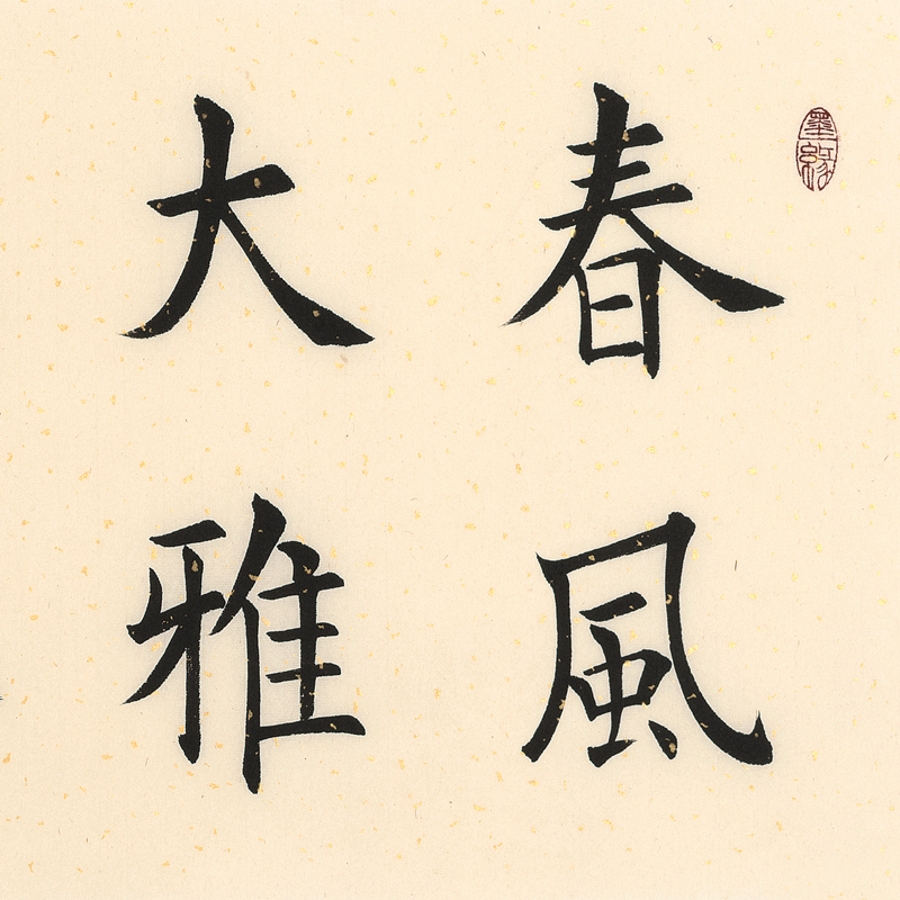 春風
大雅
墨緣